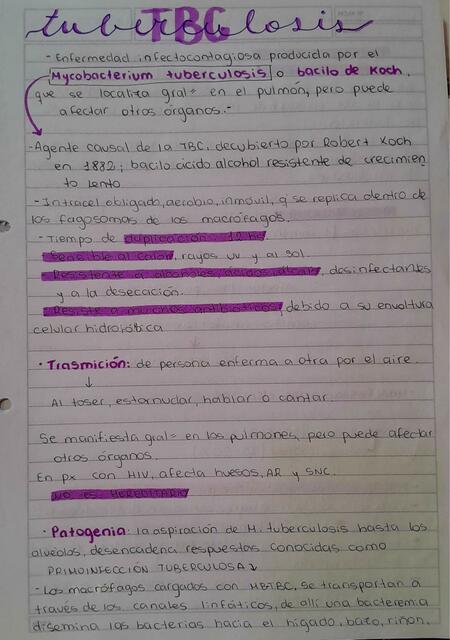 TBC
tuberculosis
- Enfermedad infectocontagiosa producida por el
Mycobacterium tuberculosis o bacilo de Koch.
que se localiza gral= en el pulmón, pero puede
afectar otros órganos.-
-Agente causal de la TBC, decubierto por Robert Koch
en 1882; bacilo ácido alcohol resistente de crecimien
to lento
- Intracel obligado, aerobio, inmóvil, q se replica dentro de
los fagosomas de los macrófagos.
- Tiempo de duplicación 12 hs.
- Sensible al calor, rayos uv y al sol.
- Resistente a alcoholes, ácidos, desinfectantes
y a la desecación.
- Resiste a muchos antibióticos, debido a su envoltura
celular hidrofóbica
· Trasmición: de persona enferma a otra por el aire.
↓
Al toser, estornudar, hablar o cantar.
Se manifiesta gral= en los pulmones, pero puede afectar
otros órganos.
En px con HIV, afecta huesos, AR y SNC.
NO ES HEREDITARIO
· Patogenia: la aspiración de M. tuberculosis hasta los
alveolos, desencadena respuestas conocidas como
PRIMOINFECCIÓN TUBERCULOSA ↓
- Los macrófagos cargados con MBTBC, se transportan a
través de los canales linfáticos, de allí una bacteremia
disemina las bacterias hacia el hígado, bazo, riñon.